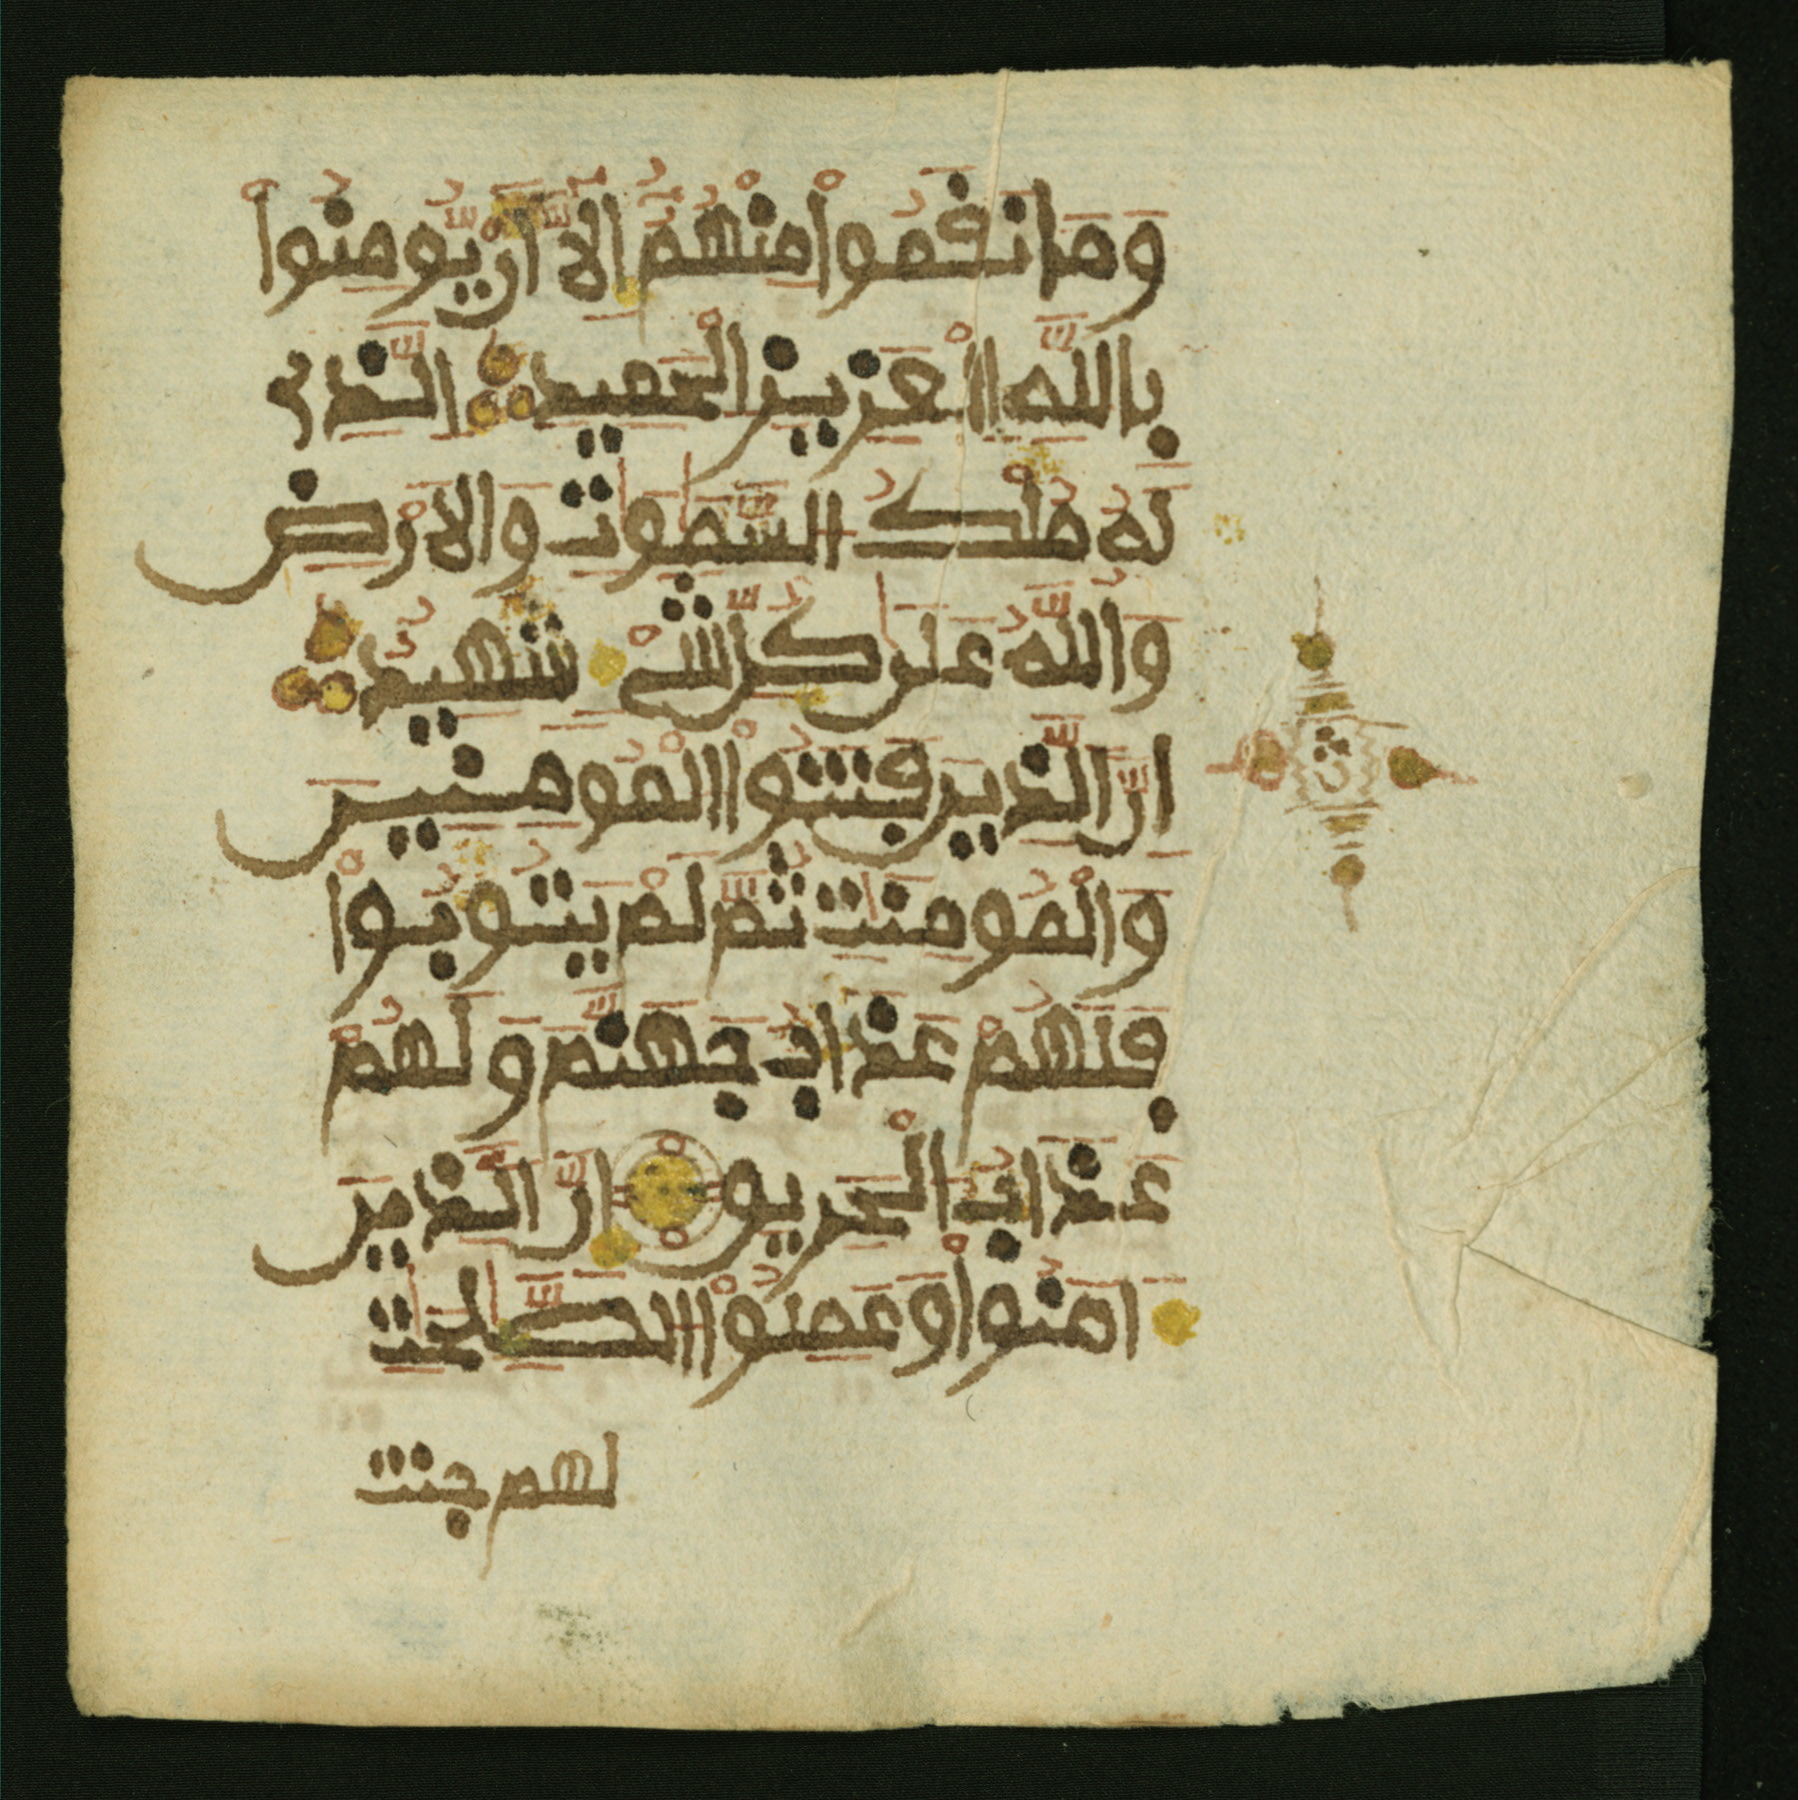 وَمَا نَقَمُواْ مِنْهُمُ إِلَّا أَنْ يُّومِنُواْ
بِاللَّهِ اِلْعَزِيزِ الْحَمِيدِ الَّذِے
لَهُ مُلْكُ السَّمَٰوَٰتِ وَالَارْضِ
وَاللَّهُ عَلَىٰ كُلِّ شَےْءٍ شَهِيدٌ
إِنَّ الَّذِينَ فَتَنُواْ اُلْمُومِنِينَ
وَالْمُومِنَٰتِ ثُمَّ لَمْ يَتُوبُواْ
فَلَهُمْ عَذَابُ جَهَنَّمَ وَلَهُمْ
عَذَابُ الْحَرِيقِ إِنَّ الَّذِينَ
ءَامَنُواْ وَعَمِلُواْ اُلصَّٰلِحَٰتِ
لهم جنت